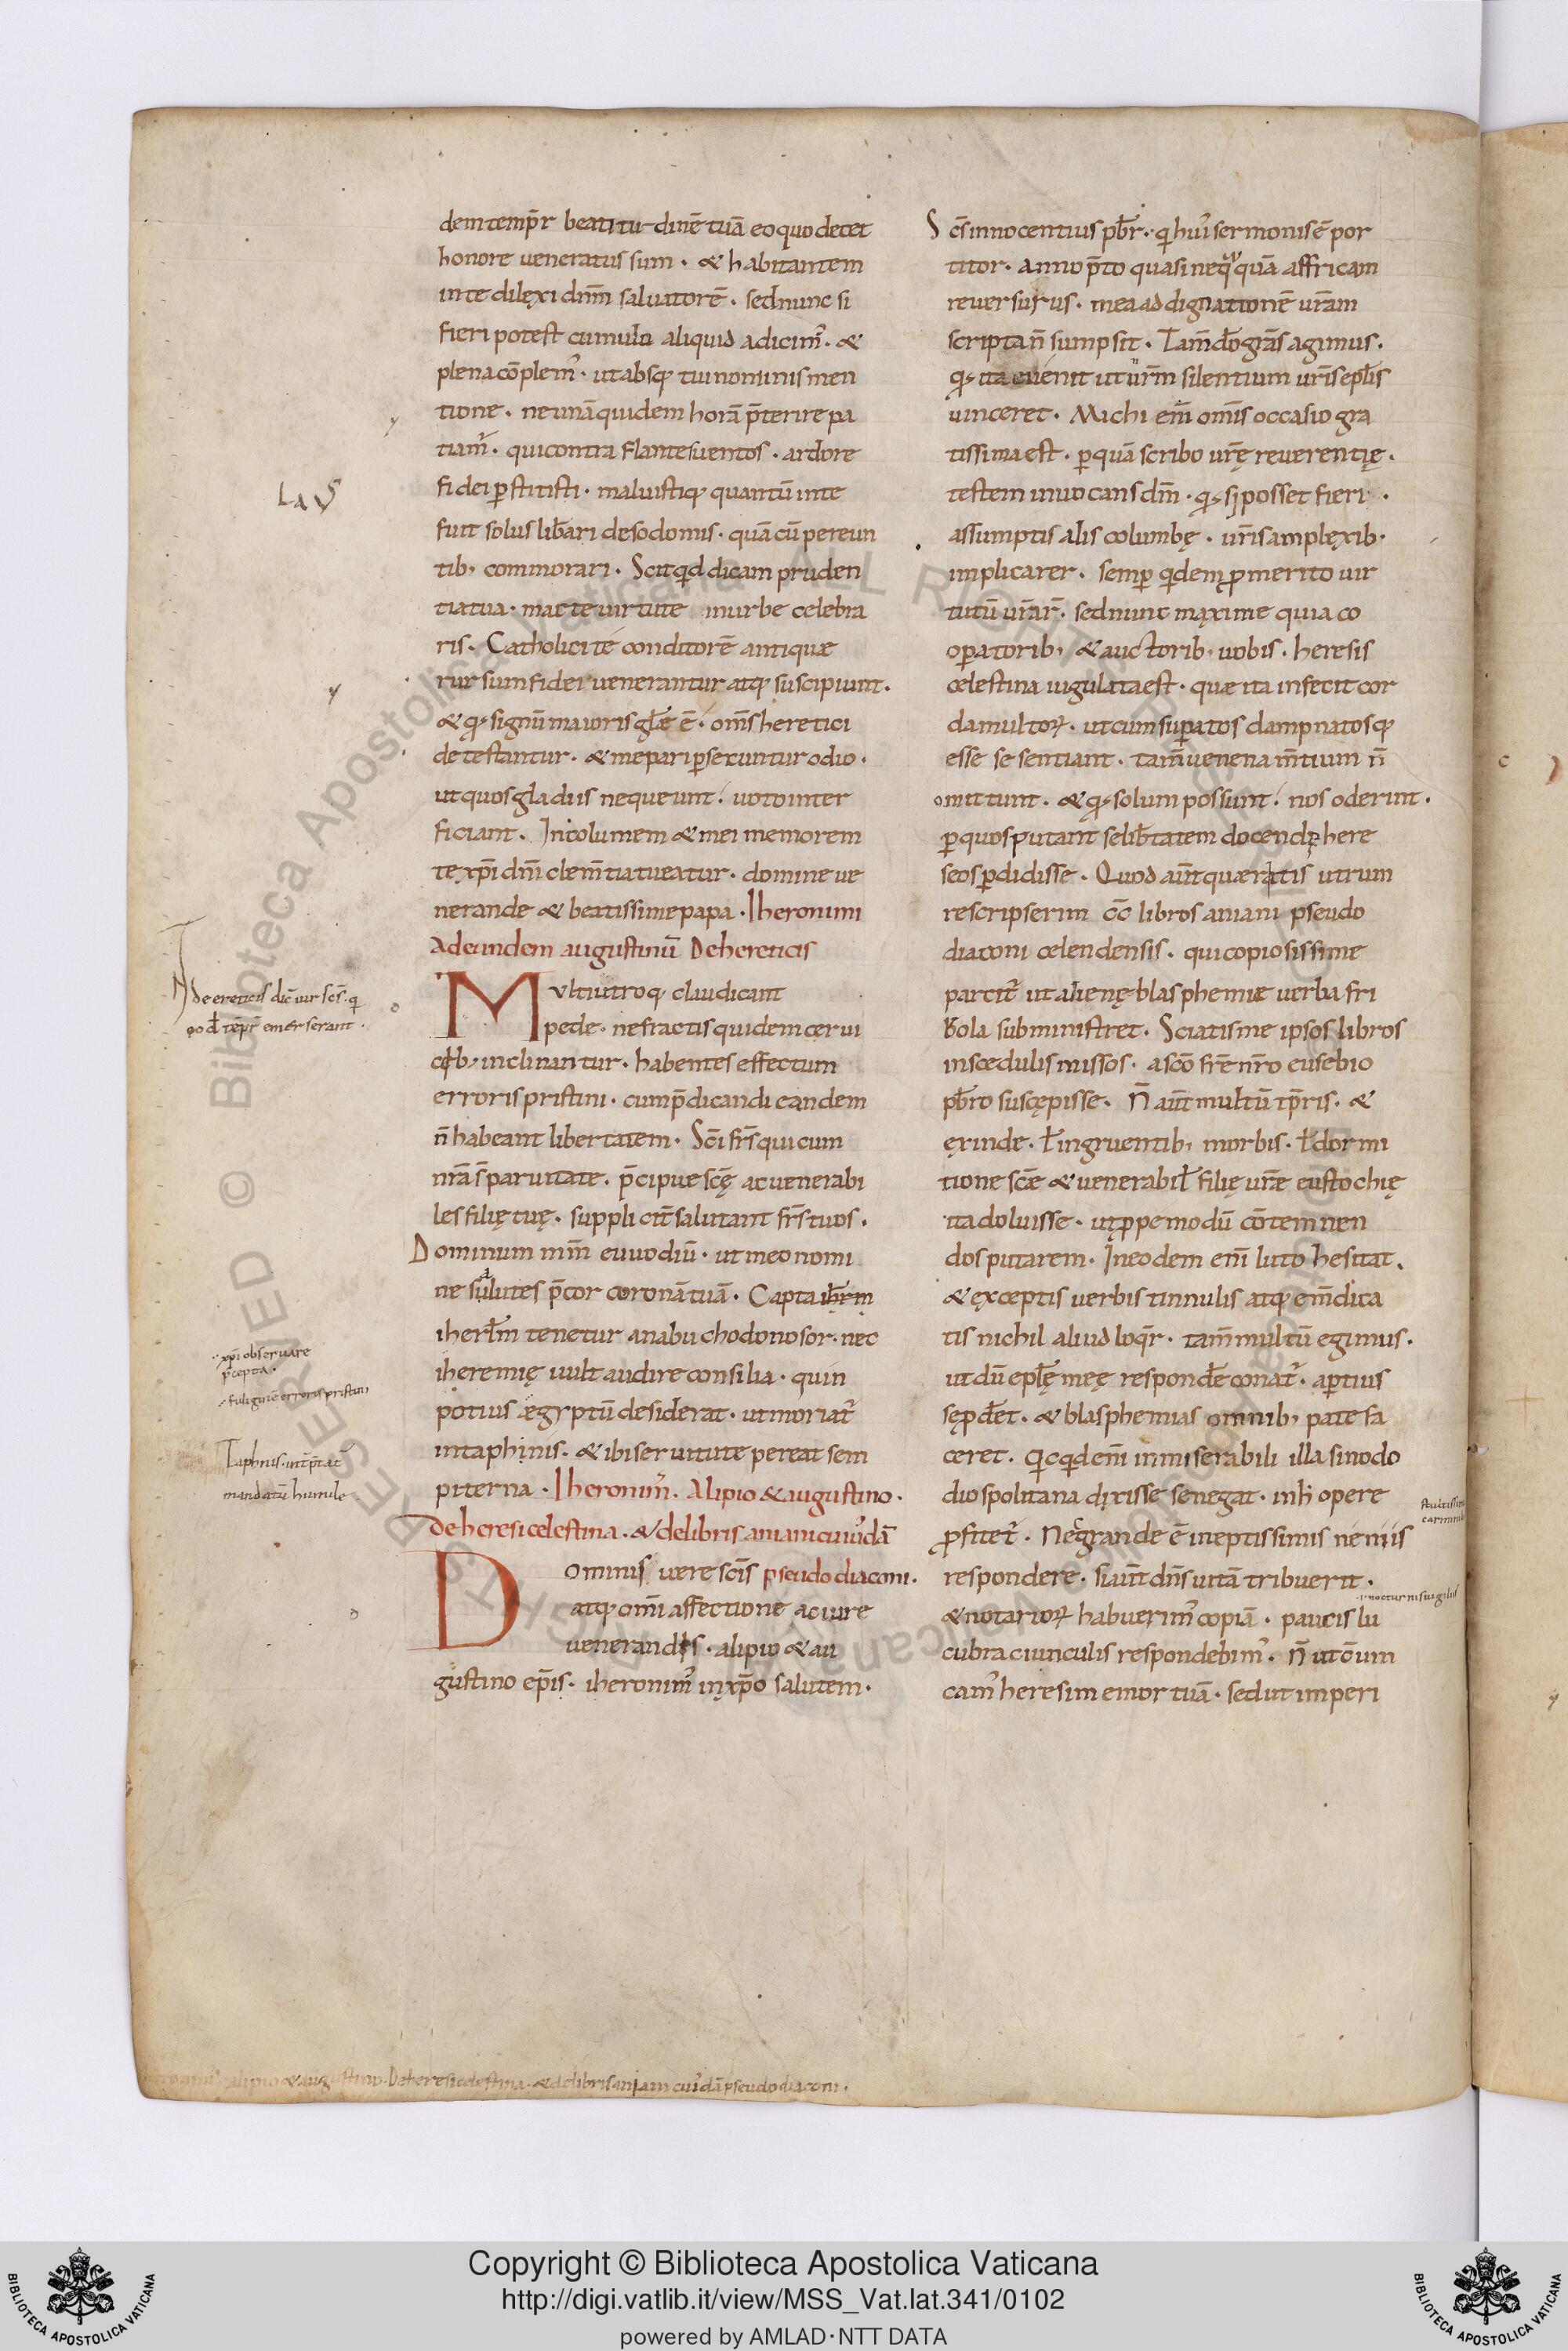 demtemp̄r beatitudinē tuā eo quo decet
honore ueneratus sum · & habitantem
in te dilęxi dn̄m saluatorē · sed nunc si
fieri potest cumulū aliquid adicimꝰ · &
plena cōplemꝰ · ut absqꝫ tui nominis men
tione · ne unā quidem horā p̄terire pa
tiamꝰ · qui contra flantes uentos · ardore
fidei ꝑstitisti · maluistiqꝫ quantū in te
fuit solus libari de sodomis · quā cū pereun
tibꝫ commorari · Scit qd dicam pruden
tia tua · macte uirtute in urbe celebra
ris · Catholici te conditorē antiquæ
rursum fidei uenerantur atqꝫ suscipiunt ·
& qꝫ signū maioris gl̄æ ē · om̄s heretici
detestantur · & me pari ꝑsecuntur odio ·
ut quos gladiis nequeunt · uoto inter
ficiant · Incolumem & mei memorem
te xp̄i dn̄i clem̄tia tueatur · domine ue
nerande & beatissime papa · Iheronimi
Ad eundem augustinū De hereticis
Multi utroqꝫ claudicant
pede · ne fractis quidem cerui
cibꝫ inclinantur · habentes effectum
erroris pristini · cum p̄dicandi eandem
n̄ habeant libertatem · Sc̄i fr̄s qui cum
nr̄a s̄ paruitate · p̄cipue sc̄ę ac uenerabi
les filię tuę · suppliciť salutant fr̄s tuos ·
Dominum mm̄ euuodiū · ut meo nomi
ne salutes p̄cor coronā tuā · Capta
iherl̄m tenetur a nabuchodonosor · nec
iheremię uult audire consilia · quin
potius ægyptū desiderat · ut moriat᷒
in taphinis · & ibi seruitute pereat sem
piterna · Iheronimꝰ · Alipio & augustino ·
de heresi celestina · & de libris aniani cuiꝰdā
Dominis uere sc̄is pseudo diaconi ·
atqꝫ om̄i affectione ac iure
uenerandis · alipio & au
gustino ep̄is · iheronimꝰ in xp̄o salutem ·
Sc̄s innocentius pbr̄ · qi huiꝰ sermonis ē por
titor · anno p̄to quasi neqꝫquā affricam
reuersurus · mea ad dignationē ur̄am
scripta n̄ sumpsit · Tam̄ dō grās agimus ·
qꝫ ita euenit ut nr̄m silentium ur̄is epl̄is
uinceret · Michi em̄ om̄is occasio gra
tissima est · ꝑ quā scribo ur̄ę reuerentię ·
testem inuocans dm̄ · qꝫ si posset fieri ·
assumptis alis columbę · ur̄is amplęxibꝫ
implicarer · semꝑ qidem ꝓ merito uir
tutū ur̄ar᷒ · sed nunc maxime quia co
oꝑatoribꝫ & auctoribꝫ uobis · heresis
celestina iugulata est · quæ ita infecit cor
da multoꝝ · ut cum suꝑatos dampnatosqꝫ
esse se sentiant · tam̄ uenena m̄tium n̄
omittunt · & qꝫ solum possunt · nos oderint ·
ꝑ quos putant se lib̄tatem docendę here
seos ꝑdidisse · Quod aut̄ quæratis utrum
rescripserim cc̄ libros aniani pseudo
diaconi celendensis · qui copiosissime
parcit᷒ ut alienę blasphemie uerba fri
uola subministret · Sciatis me ipsos libros
in scedulis missos · a sc̄o fr̄e nr̄o eusebio
pbr̄o suscępisse · N̄ aut̄ multū tp̄ris · &
exinde · ł ingruentibꝫ morbis · ł dormi
tione sc̄æ & uenerabil̄ filię ur̄æ eustochię
ita doluisse · ut ꝓpemodū cōtemnen
dos putarem · In eodem eni᷒ luto hesitat ·
& exceptis uerbis tinnulis atqꝫ em̄dica
tis nichil aliud loqr᷒ · tam̄ multū egimus ·
ut dū epl̄ę meę respondere conat᷒ · aꝑtius
sę ꝓdet · & blasphemias omnibꝫ patefa
ceret · Qicqid em̄ in miserabili illa sinodo
diospolitana dixisse se negat · in h̄ opere
ꝓfitet᷒ · Nec grande ē ineptissimis neniis
respondere · si aut̄ dn̄s uitā tribuerit ·
& notarioꝝ habuerimꝰ copiā · paucis lu
cubraciunculis respondebimꝰ · n̄ ut cōuin
camꝰ heresim emortuā · sed ut imperi
De ereticis dic̄ uir sc̄s · q
eo d̄ tēpr̄ emerserant ·
xp̄i obseruare
p̄cepta ·
fuliginē erroris pristini
Taphnis · int̄p̄tat᷒
mandatū humile
stultissimis
carminibꝫ
nocturnis uigiliis
alipio & augustino · De heresi celestina · & de libris aniani cuiꝰdā pseudo diaconi ·
BIBLIOTECA APOSTOLICA VATICANA
Copyright © Biblioteca Apostolica Vaticana
http://digi.vatlib.it/view/MSS_Vat.lat.341/0102
powered by AMLAD·NTT DATA
BIBLIOTECA APOSTOLICA VATICANA